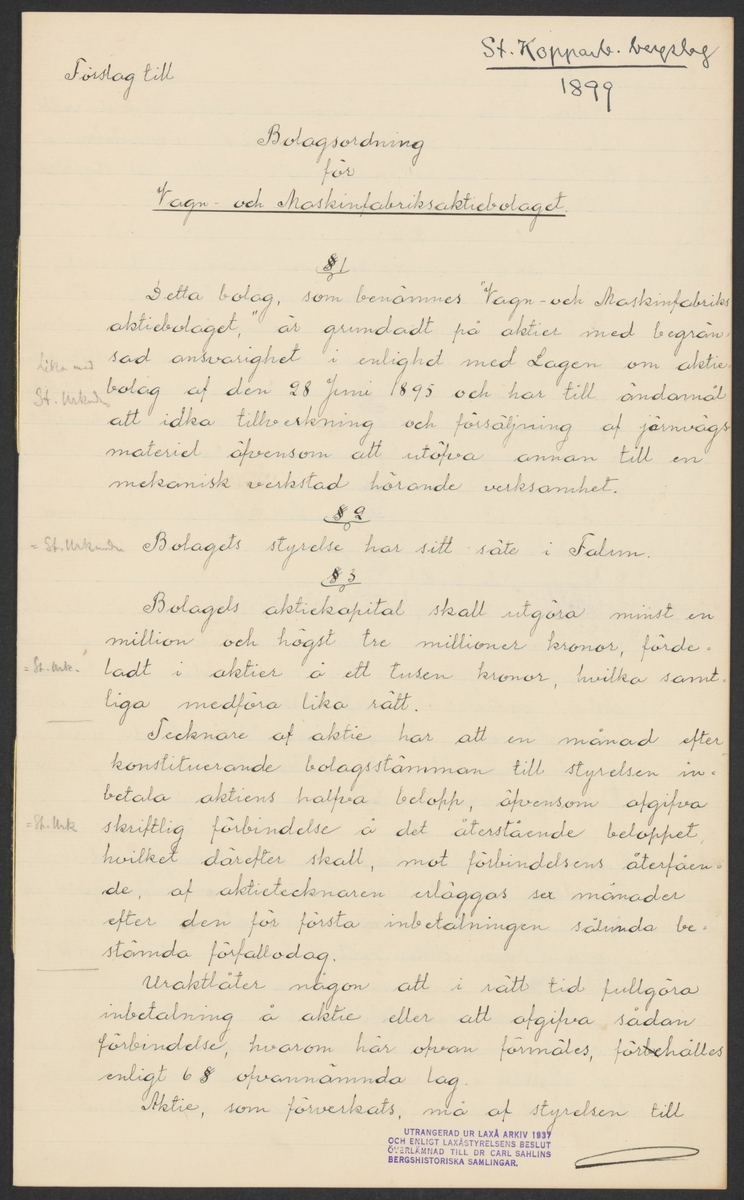 St. Kopparb. bergslag
1899
Förslag till
Bolagsordning
för
Vagn- och Maskinfabriksaktiebolaget.
§ 1
Detta bolag, som benämnes "Vagn- och Maskinfabriks
aktiebolaget," är grundadt på aktier med begrän-
sad ansvarighet i enlighet med Lagen om aktie-
bolag af den 28 Juni 1895 och har till ändamål
att idka tillverkning och försäljning af järnvägs
materiel äfvensom att utöfva annan till en
mekanisk verkstad hörande verksamhet.
Lika med
St. Urkunden
§ 2
= St. Urkunden
Bolagets styrelse har sitt säte i Falun.
§ 3
Bolagets aktiekapital skall utgöra minst en
million och högst tre millioner kronor, förde-
ladt i aktier å ett tusen kronor, hvilka samt-
liga medföra lika rätt.
= St. Urk.
Tecknare af aktie har att en månad efter
konstituerande bolagsstämman till styrelsen in-
betala aktiens halfva belopp, äfvensom afgifva
skriftlig förbindelse å det återstående beloppet,
hvilket därefter skall, mot förbindelsens återfåen-
de, af aktietecknaren erläggas sex månader
efter den för första inbetalningen sålunda be-
stämda förfallodag.
= St. Urk
Uraktlåter någon att i rätt tid fullgöra
inbetalning å aktie eller att afgifva sådan
förbindelse, hvarom här ofvan förmäles, förbehålles
enligt 6 § ofvannämnda lag.
Aktie, som förverkats, må af styrelsen till
UTRANGERAD UR LAXÅ ARKIV 1937
OCH ENLIGT LAXÅSTYRELSENS BESLUT
ÖVERLÄMNAD TILL DR CARL SAHLINS
BERGSHISTORISKA SAMLINGAR.